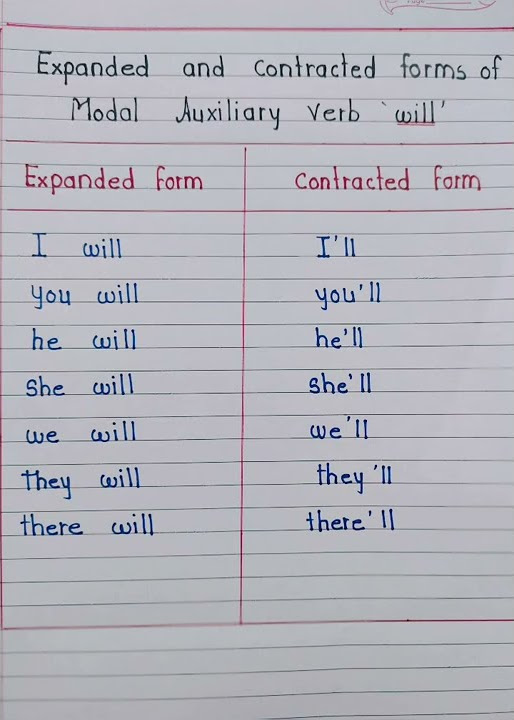 Expanded and Contracted forms of
Modal Auxiliary Verb 'will'
Expanded form Contracted form
I will I'll
you will you'll
he will he'll
she will she'll
we will we'll
they will they'll
there will there'll